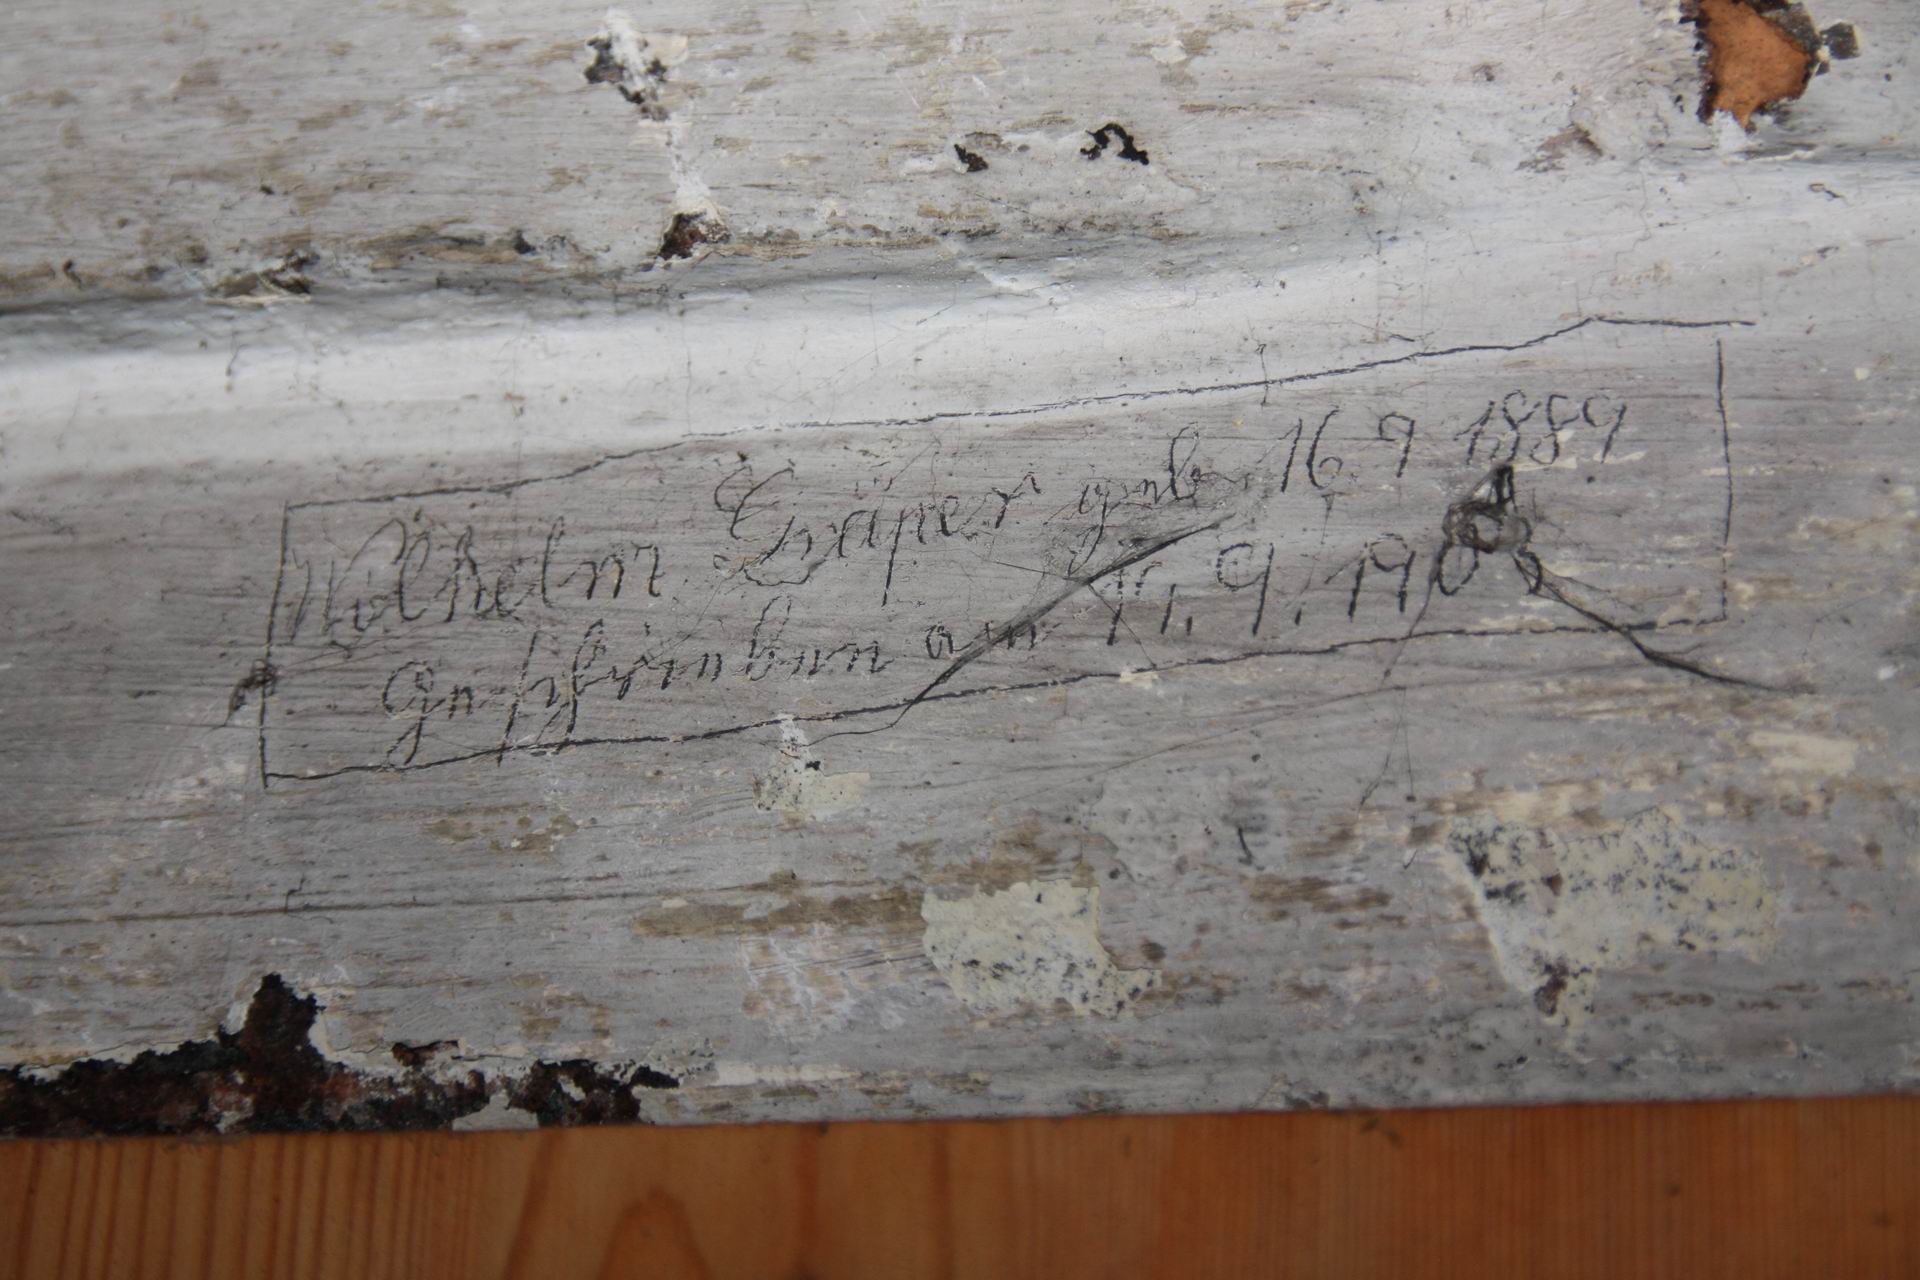 Wilhelm Gräper geb. 16 9 1889
Geschrieben am 11. 9. 190